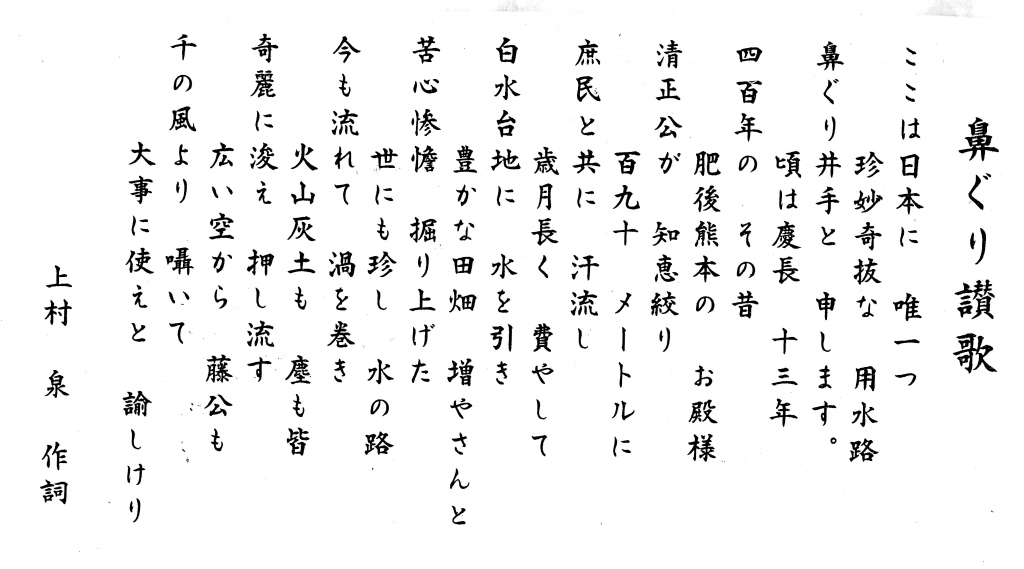 鼻ぐり讃歌
ここは日本に　唯一つ
珍妙奇抜な　用水路
鼻ぐり井手と　申します。
頃は慶長　十三年
四百年の　その昔
肥後熊本の　お殿様
清正公が　知恵絞り
百九十　メートルに
庶民と共に　汗流し
歳月長く　費やして
白水台地に　水を引き
豊かな田畑　増やさんと
苦心惨憺　掘り上げた
世にも珍し　水の路
今も流れて　渦を巻き
火山灰土も　塵も皆
奇麗に浚え　押し流す
広い空から　藤公も
千の風より　囁いて
大事に使えと　諭しけり
上村　泉　作詞